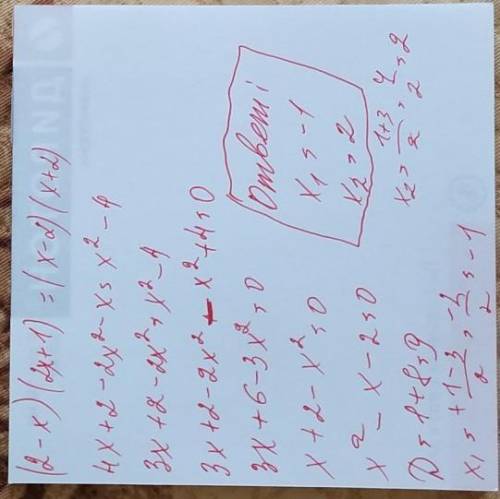 (2-x)(2x+1)=(x-2)(x+2)
4x+2-2x²-x=x²-4
3x+2-2x²=x²-4
3x+2-2x²-x²+4=0
3x+6-3x²=0
x+2-x²=0
x²-x-2=0
D=1+8=9
x₁=+\frac{1-3}{2}=\frac{-2}{2}=-1
x₂=\frac{1+3}{2}=\frac{4}{2}=2
Ответ:
x₁=-1
x₂=2